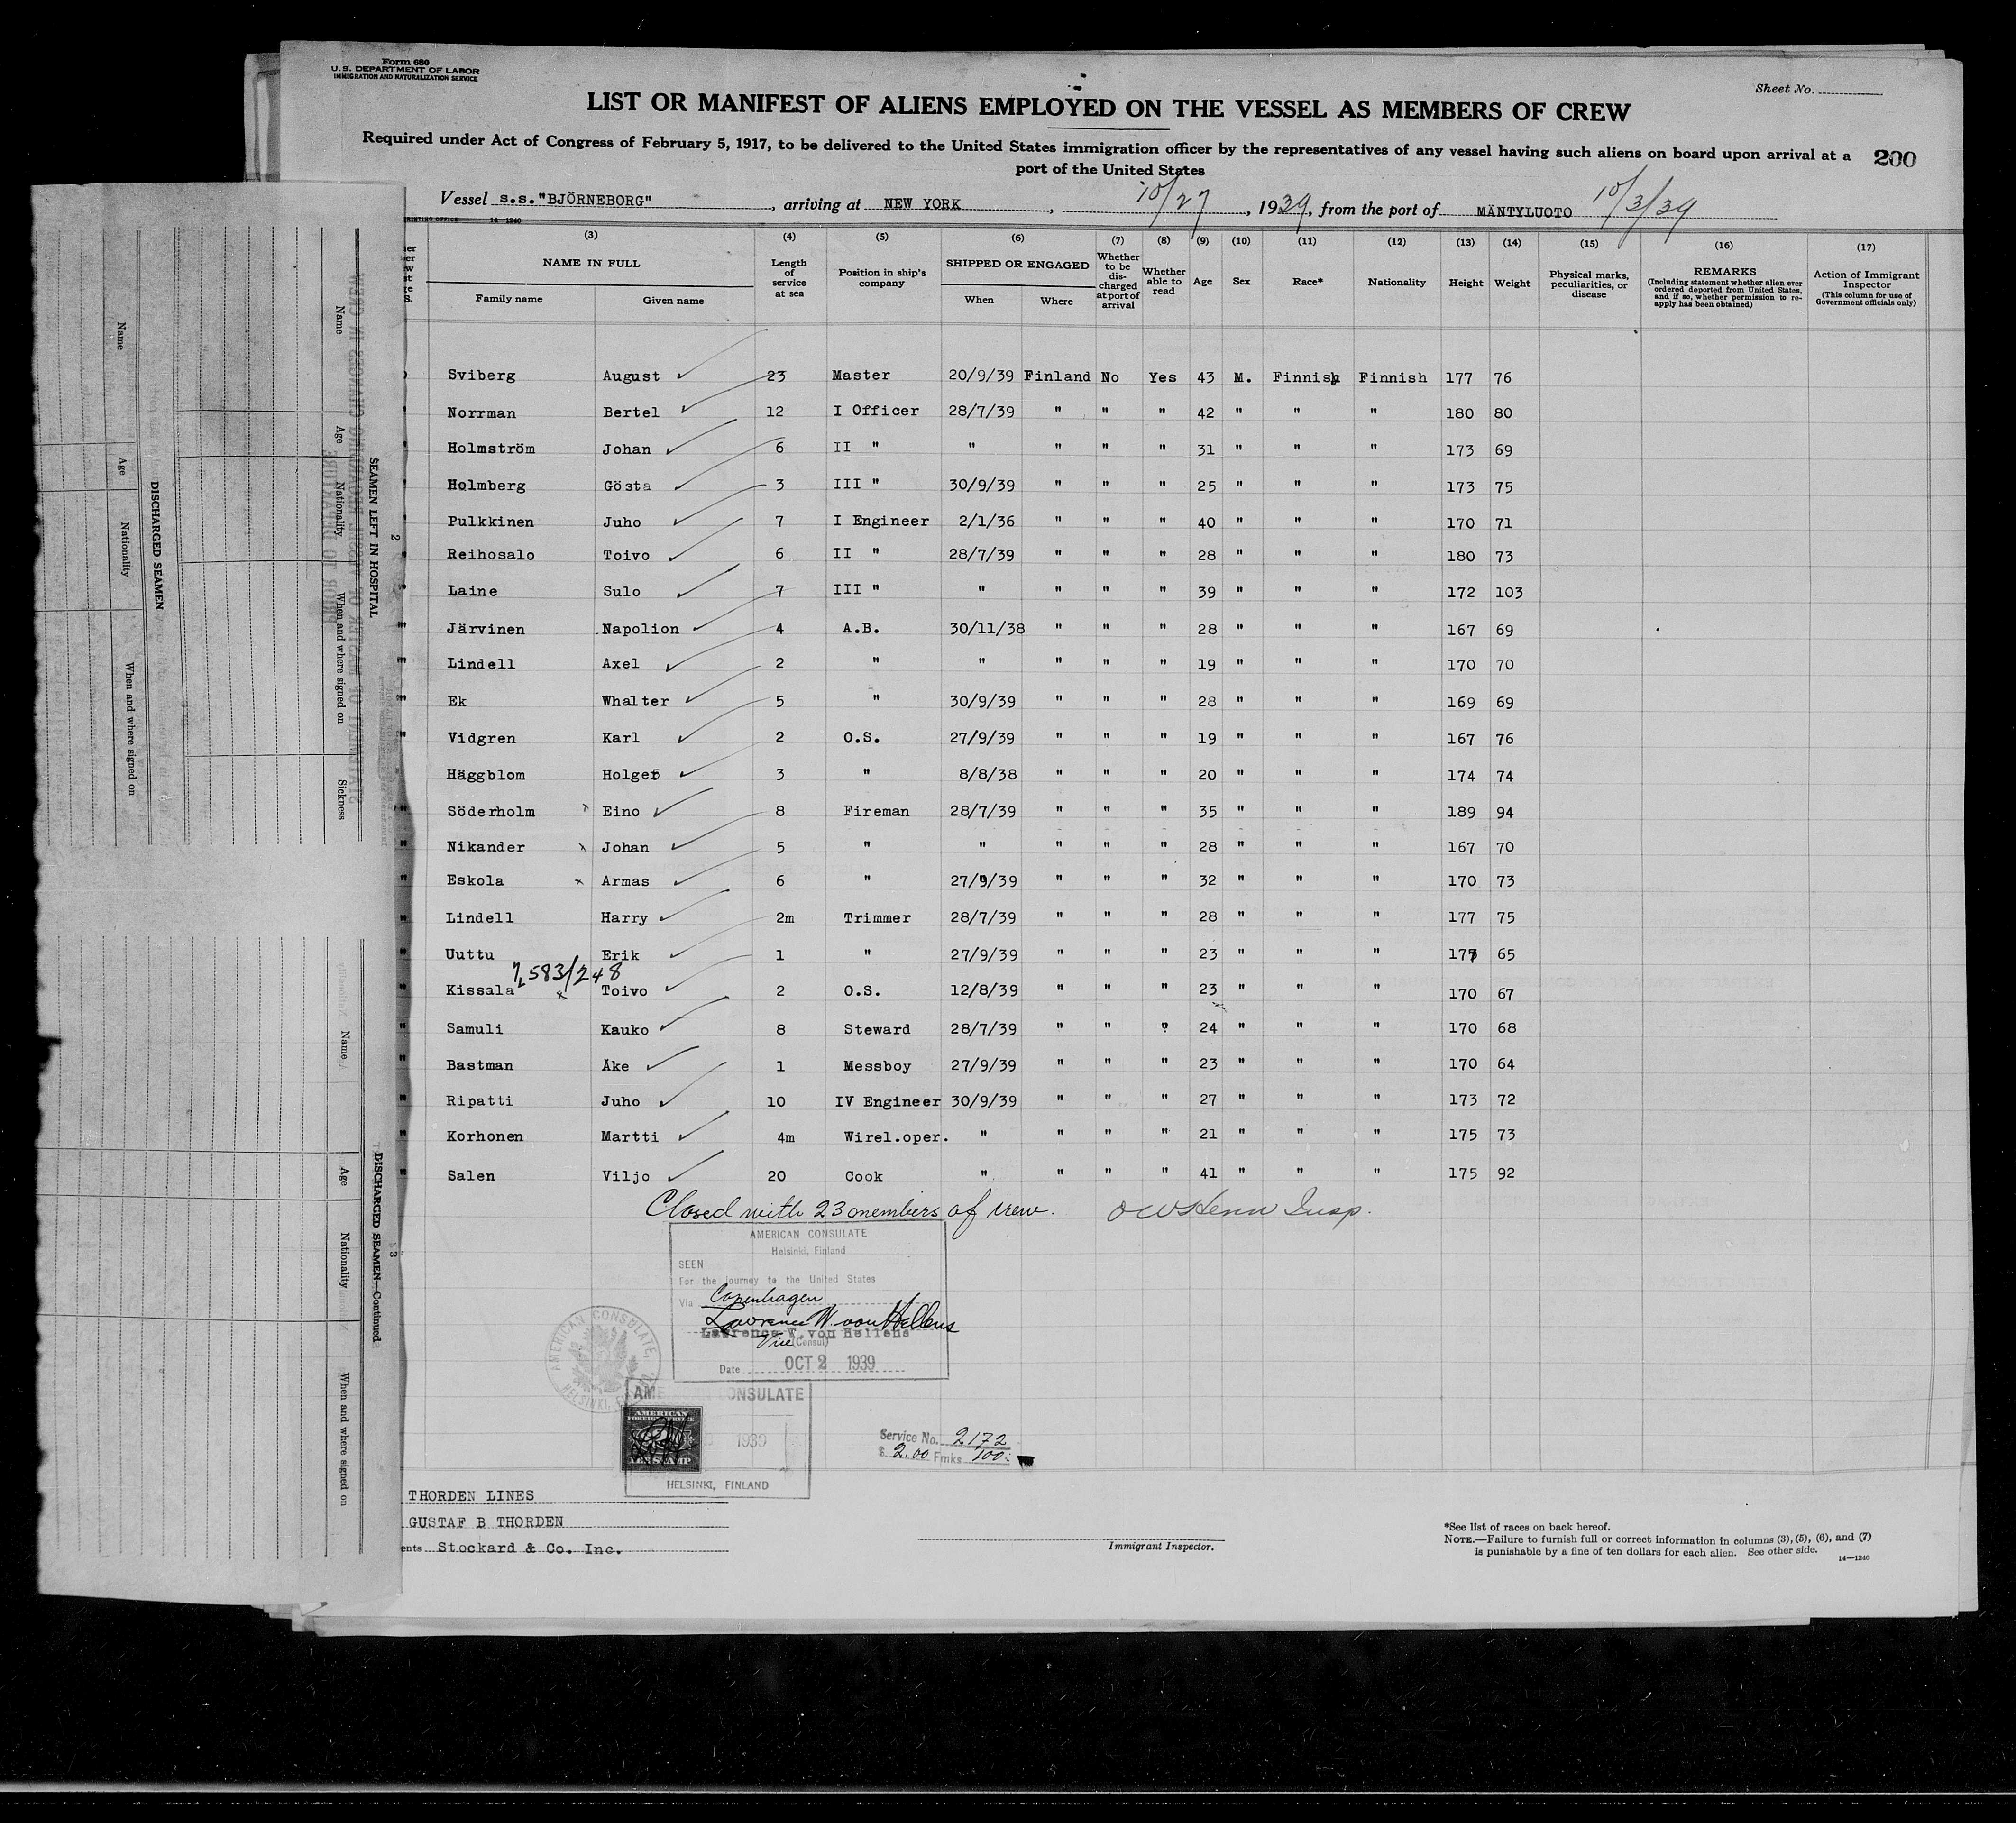 Form 680
U.S. DEPARTMENT OF LABOR
IMMIGRATION AND NATURALIZATION SERVICE
Sheet No.
LIST OR MANIFEST OF ALIENS EMPLOYED ON THE VESSEL AS MEMBERS OF CREW
Required under Act of Congress of February 5, 1917, to be delivered to the United States immigration officer by the representatives of any vessel having such aliens on board upon arrival at a
port of the United States
200
Vessel s.s."BJÖRNEBORG", arriving at NEW YORK, 10/27, 1939, from the port of MÄNTYLUOTO 10/3/39
14-1240
(3) (4) (5) (6) (7) (8) (9) (10) (11) (12) (13) (14) (15) (16) (17)
NAME IN FULL
Family name Given name
Length of service at sea
Position in ship's company
SHIPPED OR ENGAGED
When Where
Whether to be discharged at port of arrival
Whether able to read
Age Sex Race* Nationality Height Weight
Physical marks, peculiarities, or disease
REMARKS
(Including statement whether alien ever ordered deported from United States, and if so, whether permission to re-apply has been obtained)
Action of Immigrant Inspector
(This column for use of Government officials only)
Sviberg August 23 Master 20/9/39 Finland No Yes 43 M. Finnish Finnish 177 76
Norrman Bertel 12 I Officer 28/7/39 " " " 42 " " " 180 80
Holmström Johan 6 II " " " " " 31 " " " 173 69
Holmberg Gösta 3 III " 30/9/39 " " " 25 " " " 173 75
Pulkkinen Juho 7 I Engineer 2/1/36 " " " 40 " " " 170 71
Reihosalo Toivo 6 II " 28/7/39 " " " 28 " " " 180 73
Laine Sulo 7 III " " " " " 39 " " " 172 103
Järvinen Napolion 4 A.B. 30/11/38 " " " 28 " " " 167 69
Lindell Axel 2 " " " " " 19 " " " 170 70
Ek Whalter 5 " 30/9/39 " " " 28 " " " 169 69
Vidgren Karl 2 O.S. 27/9/39 " " " 19 " " " 167 76
Häggblom Holger 3 " 8/8/38 " " " 20 " " " 174 74
Söderholm Eino 8 Fireman 28/7/39 " " " 35 " " " 189 94
Nikander x Johan 5 " " " " " 28 " " " 167 70
Eskola x Armas 6 " 27/9/39 " " " 32 " " " 170 73
Lindell Harry 2m Trimmer 28/7/39 " " " 28 " " " 177 75
Uuttu Erik 1 " 27/9/39 " " " 23 " " " 177 65
583/248
Kissala x Toivo 2 O.S. 12/8/39 " " " 23 " " " 170 67
Samuli Kauko 8 Steward 28/7/39 " " ? 24 " " " 170 68
Bastman Åke 1 Messboy 27/9/39 " " " 23 " " " 170 64
Ripatti Juho 10 IV Engineer 30/9/39 " " " 27 " " " 173 72
Korhonen Martti 4m Wirel.oper. " " " " 21 " " " 175 73
Salen Viljo 20 Cook " " " " 41 " " " 175 92
Closed with 23 members of crew. Insp.
AMERICAN CONSULATE
Helsinki, Finland
SEEN
For the journey to the United States
Via Copenhagen
Lawrence W. von Hellens
Lawrence W. von Hellens
Vice (Consul)
Date OCT 2 1939
AMERICAN CONSULATE, HELSINKI, FINLAND
AMERICAN CONSULATE
AMERICAN FOREIGN SERVICE
1939
HELSINKI, FINLAND
Service No. 2172
$ 2.00 Fmks 100:
THORDEN LINES
GUSTAF B THORDEN
Stockard & Co. Inc.
Immigrant Inspector.
*See list of races on back hereof.
NOTE.—Failure to furnish full or correct information in columns (3), (5), (6), and (7)
is punishable by a fine of ten dollars for each alien. See other side.
14—1240
SEAMEN LEFT IN HOSPITAL
Name Age Nationality When and where signed on Sickness
DISCHARGED SEAMEN
Name Age Nationality When and where signed on
DISCHARGED SEAMEN—Continued
Name Age Nationality When and where signed on
2
3